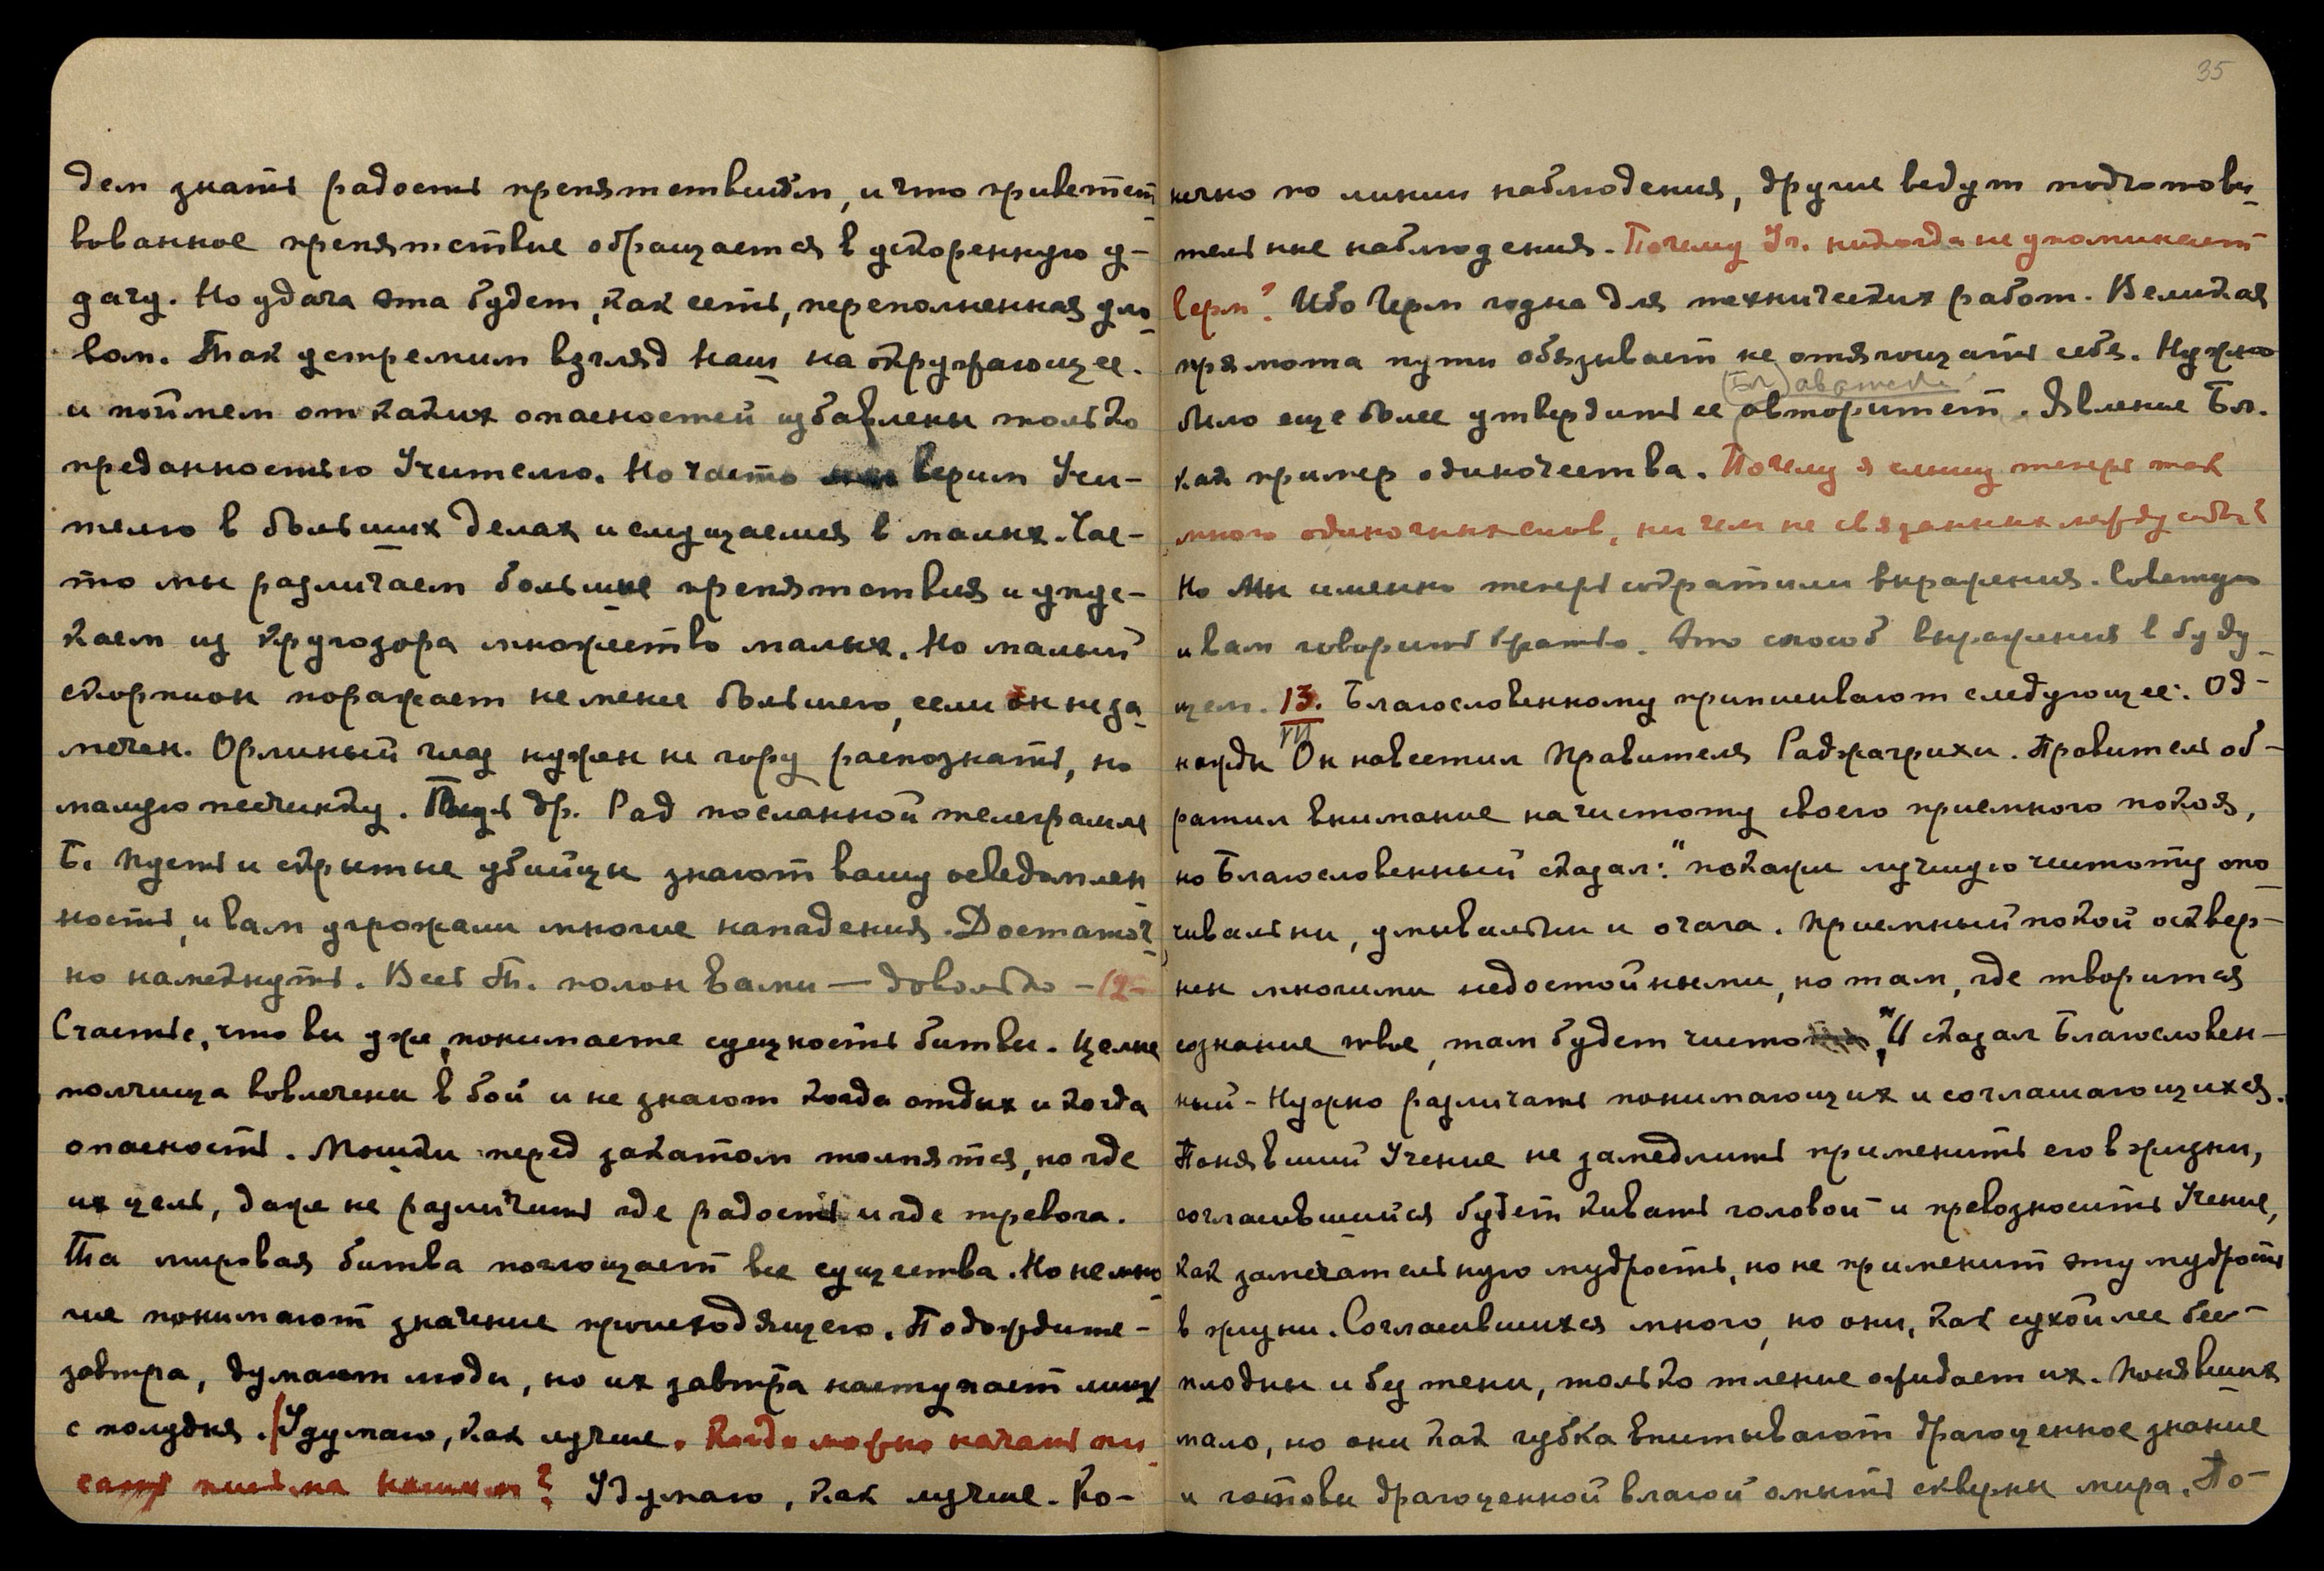 дем знать радость препятствиям, и что приветст-
вованное препятствие обращается в ускоренную у-
дачу. Но удача эта будет, как сеть, переполненная уло-
вом. Так устремим взгляд наш на окружающее.
и поймем от каких опасностей избавлены только
преданностью Учителю. Но часто верим Учи-
телю в больших делах и смущаемся в малых. Час-
то мы различаем большие препятствия и упус-
каем из кругозора множество малых. Но малый
скорпион поражает не менее большего, если он не за-
мечен. Орлиный глаз нужен не гору распознать, но
малую песчинку. др. Рад посланной телеграмме
Б. Пусть и скрытые убийцы знают вашу осведомлен
ность, и вам угрожали многие нападения. Достаточ-
но намекнуть. Весь Т. полон Вами — довольно - 12 -
Счастье, что вы уже понимаете сущность битвы. Целые
полчища вовлечены в бой и не знают когда отдых и когда
опасность. Мошки перед закатом толпятся, но где
их цель, даже не различить где радость и где тревога.
Та мировая битва поглощает все существа. Но немно-
гие понимают значение происходящего. Подождите -
завтра, думают люди, но их завтра наступает лишь
с полудня. Удумаю, как лучше. Когда можно начать пи-
сать письма нашим? Удумаю, как лучше. Ко-
35
нечно по линии наблюдения, другие ведут подготови-
тельные наблюдения. Почему Уч. никогда не упоминает
Черм? Ибо Черм годна для технических работ. Великая
прямота пути обязывает не отягощать себя. Нужно
(Бл)
было еще более утвердить ее авторитет. Явление Бл.
как пример одиночества. Почему я слышу теперь так
много одиночных слов, ни чем не связанных между собой?
Но Мы именно теперь сократили выражения. Советую
и вам говорить кратко. Это способ выражения в буду-
щем. 13. Благословенному приписывают следующее: Од-
VII
нажды Он навестил Правителя Раджагрихи. Правитель об-
ратил внимание на чистоту своего приемного покоя,
но Благословенный сказал: "покажи лучшую чистоту опо-
чивальни, умывальни и очага. Приемный покой осквер-
нен многими недостойными, но там, где творится
сознание твое, там будет чисто". И сказал Благословен-
ный - Нужно различать понимающих и соглашающихся.
Понявший Учение не замедлить применить его в жизни,
согласившийся будет кивать головой и превозносить Учение,
как замечательную мудрость, но не применит эту мудрость
в жизни. Согласившихся много, но они, как сухой лес бес-
плодны и без тени, только тление ожидает их. Понявших
мало, но они как губка впитывают драгоценное знание
и готовы драгоценной влагой омыть скверны мира. По-